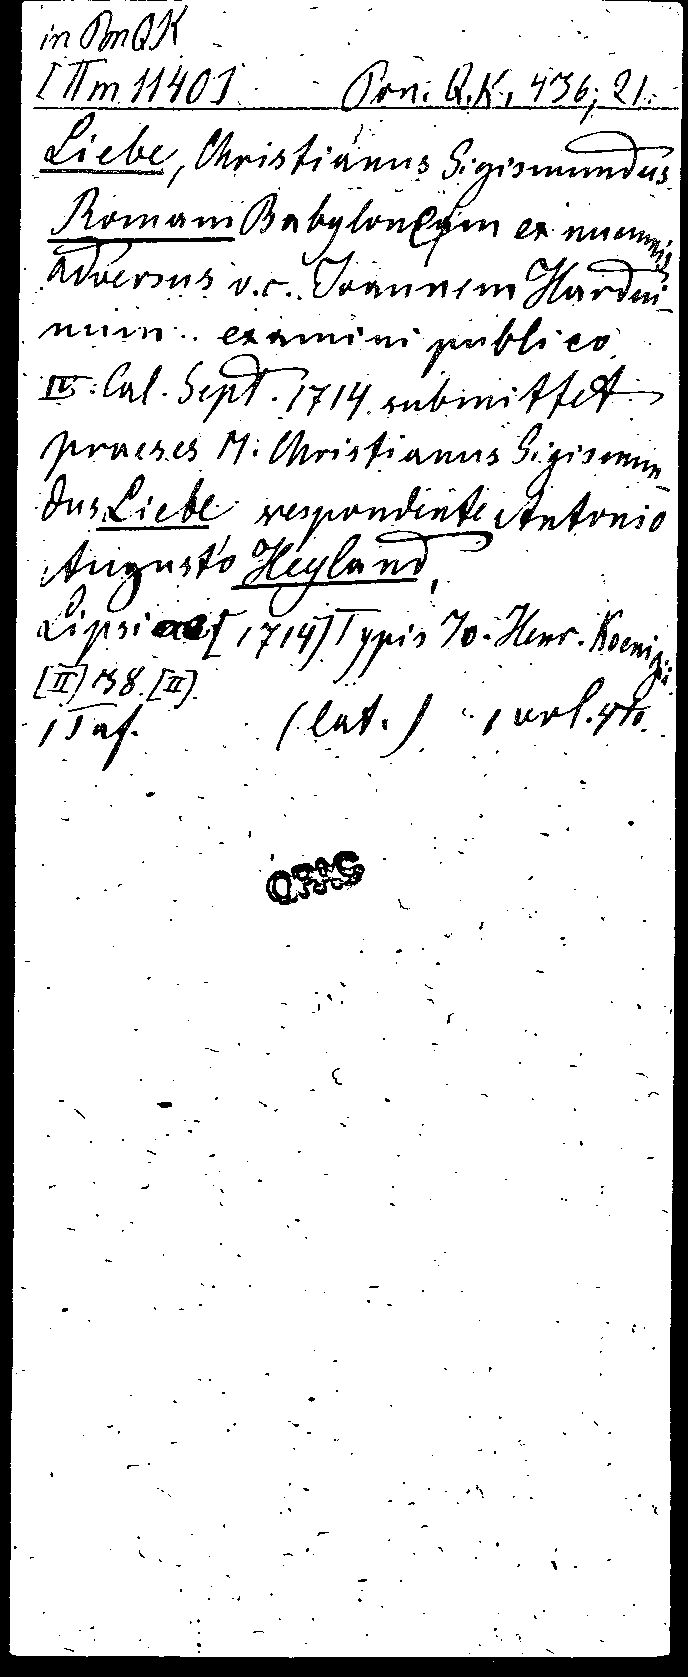 in PmQK
[IIm 1140]  Pon. Q.K., 436; 21.
Liebe, Christianus Sigismundus
Romam Babylonem ex nummis
adversus v.c. Joannem Hardui-
num .. examini publico
IV. Cal. Sept. 1714 submittet
praeses M. Christianus Sigismun-
dus Liebe respondente Antonio
Augusto Heyland,
Lipsiae [1714] Typis Jo. Henr. Koenigii
[II] 38 [II].
1 Taf. (lat.) 1 vol. 4to.